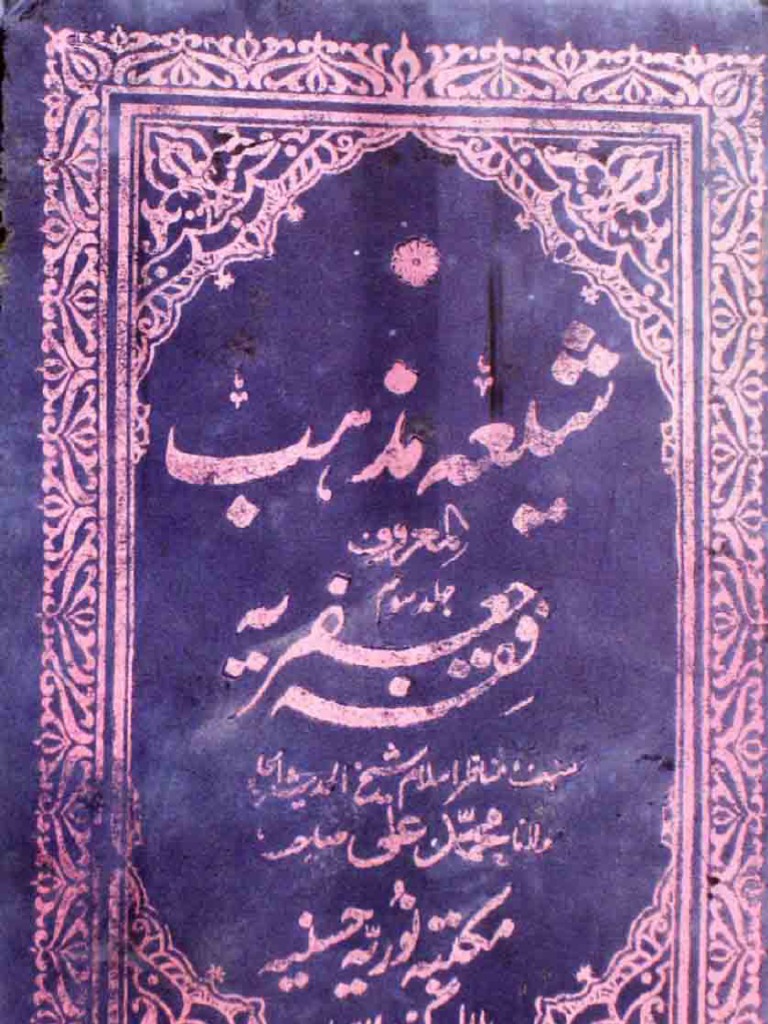 شیعہ مذہب
المعروف
جلد سوم
فقہ جعفریہ
مناظر اسلام شیخ الحدیث الحاج
مولانا محمد علی صاحب
مکتبہ نوریہ حسنیہ